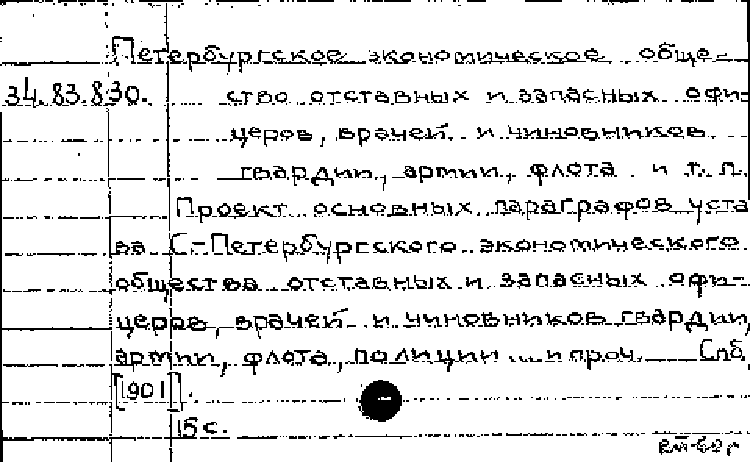 Петербургское экономическое обще-
34.83.830. ство отставных и запасных офи-
церов, врачей и чиновников
гвардии, армии, флота и т. п.
Проект основных параграфов уста
ва С-Петербургского экономического
общества отставных и запасных офи-
церов, врачей и чиновников гвардии,
армии, флота, полиции ... и проч. Спб,
[1901].
15 с.